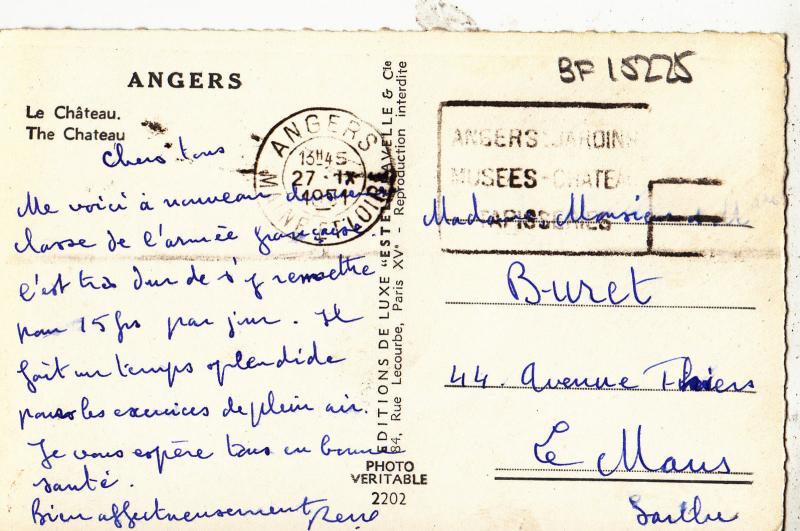 ANGERS
Le Château.
The Chateau
Chers tous
Me voici à nouveau
classe de l'armée française
c'est très dur de s'y remettre
pour 15 frs par jour. Il
fait un temps splendide
pour les exercices de plein air.
Je vous espère tous en bonne
santé.
Bien affectueusement René
ANGERS
13H45
27 - IX
1951
MNE-ET-LOIRE
EDITIONS DE LUXE "ESTEL" LAVELLE & Cie
84, Rue Lecourbe, Paris XVe - Reproduction interdite
PHOTO
VERITABLE
2202
BF 15225
ANGERS JARDINS
MUSEES - CHATEAU
TAPISSERIES
Madame Monsieur
Buret
44. Avenue Thiers
Le Mans
Sarthe